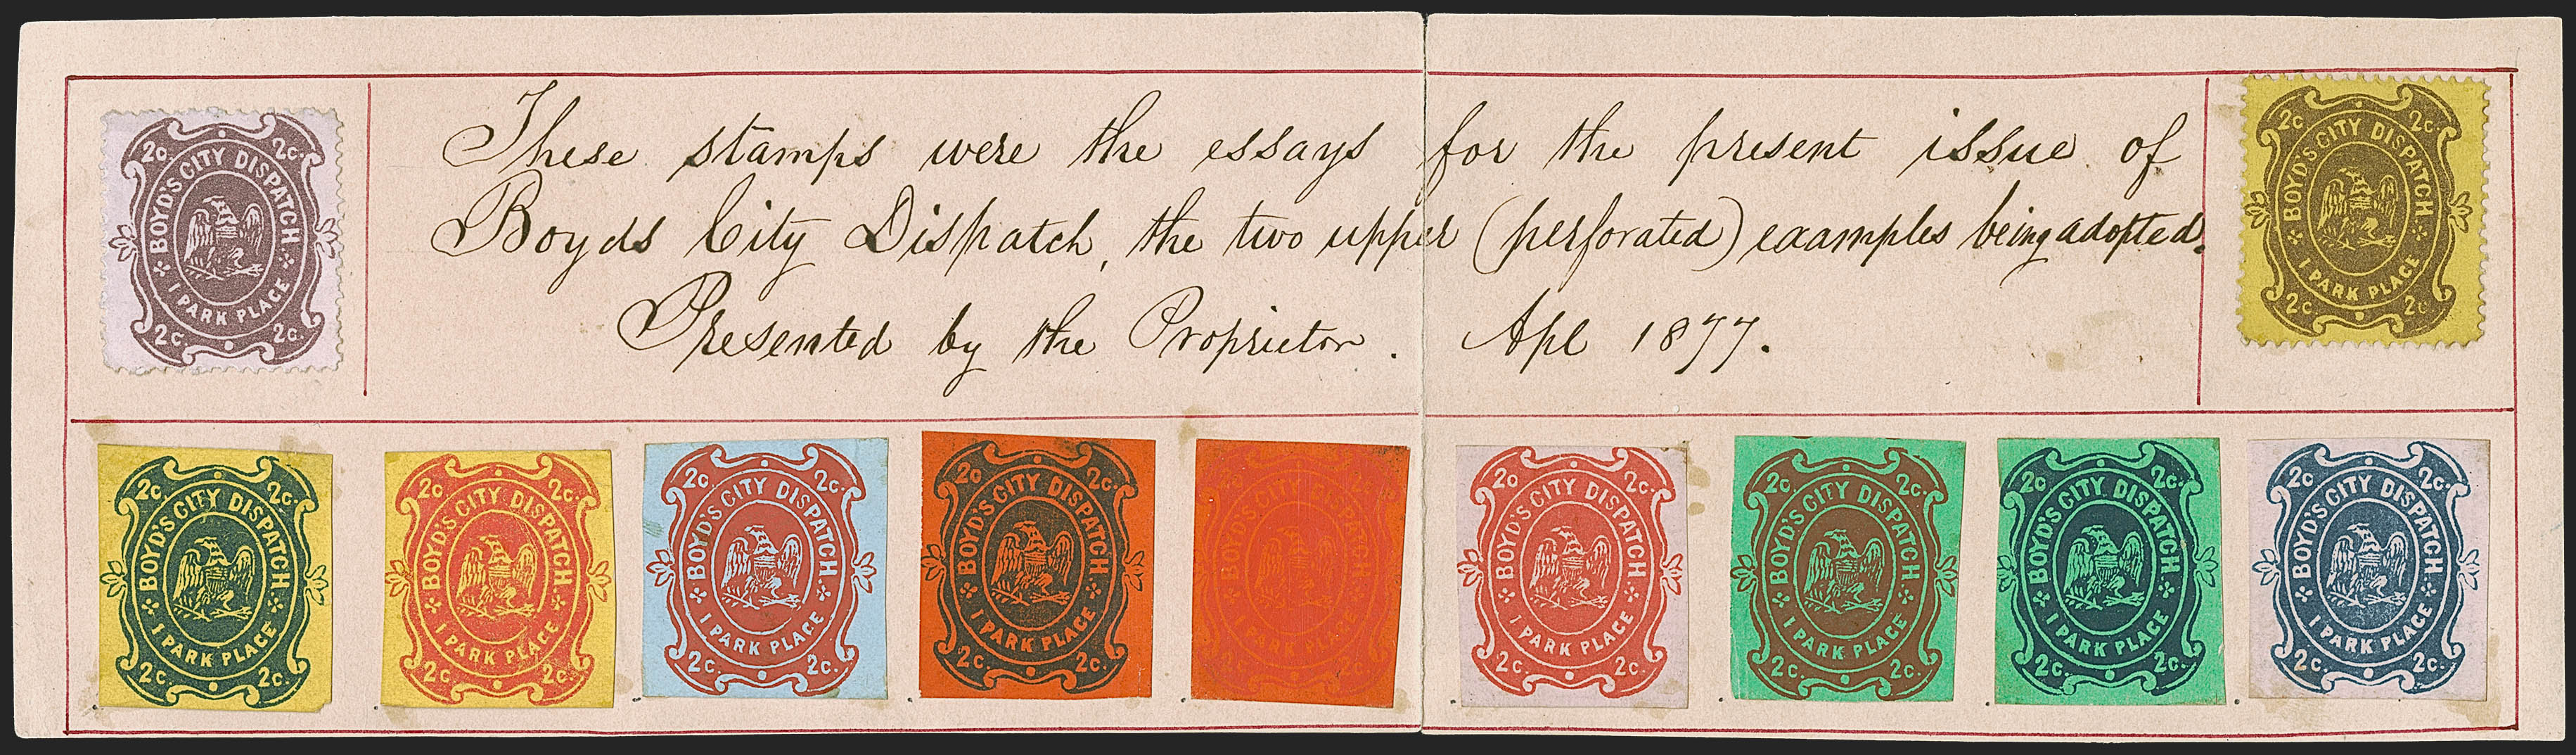 These stamps were the essays for the present issue of
Boyds City Dispatch, the two upper (perforated) examples being adopted.
Presented by the Proprietor. Apl 1877.
2c. 2c.
BOYD'S CITY DISPATCH
1 PARK PLACE
2c. 2c.
2c 2c.
BOYD'S CITY DISPATCH
1 PARK PLACE
2c 2c
2c 2c.
BOYD'S CITY DISPATCH
1 PARK PLACE
2c. 2c.
2c 2c.
BOYD'S CITY DISPATCH
1 PARK PLACE
2c 2c.
2c 2c.
BOYD'S CITY DISPATCH
1 PARK PLACE
2c. 2c.
2c 2c.
BOYD'S CITY DISPATCH
1 PARK PLACE
2c. 2c.
BOYD'S CITY DISPATCH
1 PARK PLACE
2c 2c.
BOYD'S CITY DISPATCH
1 PARK PLACE
2c 2c.
2c 2c.
BOYD'S CITY DISPATCH
1 PARK PLACE
2c. 2c.
2c 2c.
BOYD'S CITY DISPATCH
1 PARK PLACE
2c. 2c.
2c 2c.
BOYD'S CITY DISPATCH
1 PARK PLACE
2c. 2c.